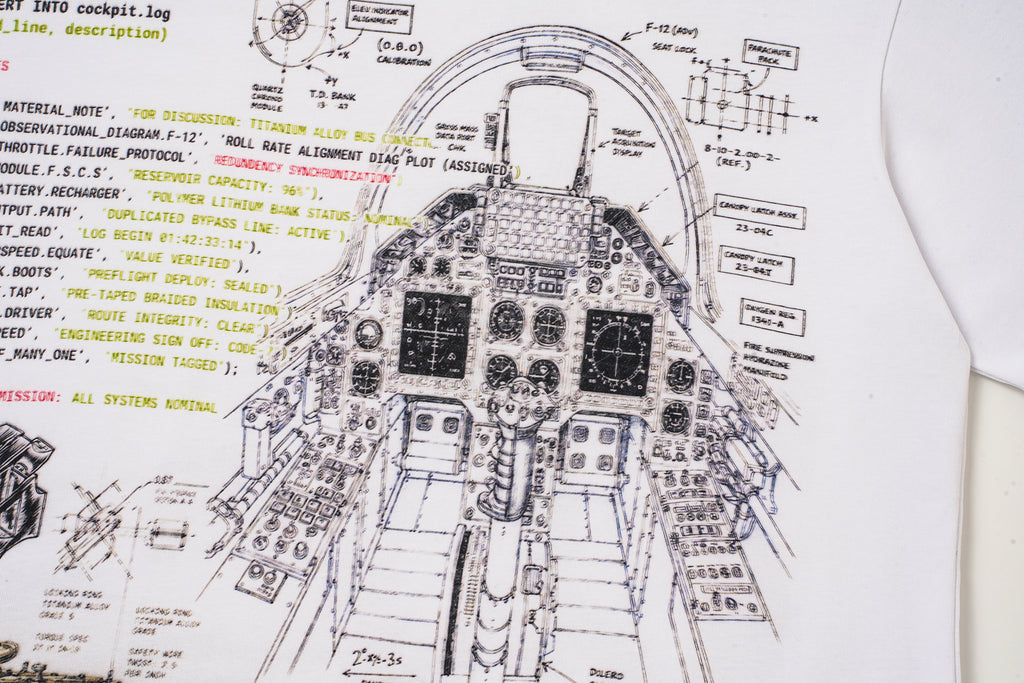 ERT INTO cockpit.log
d_line, description)
S
MATERIAL_NOTE', 'FOR DISCUSSION: TITANIUM ALLOY BUS CONNECT
OBSERVATIONAL_DIAGRAM.F-12', 'ROLL RATE ALIGNMENT DIAG PLOT (ASSIGNED')
THROTTLE.FAILURE_PROTOCOL', REDUNDENCY SYNCHRONIZATION")
MODULE.F.S.C.S', "RESERVOIR CAPACITY: 96%"),
ATTERY.RECHARGER', "POLYMER LITHIUM BANK STATUS: NOMINAL
TPUT.PATH', "DUPLICATED BYPASS LINE: ACTIVE"),
IT_READ', 'LOG BEGIN 01:42:33:14"),
SPEED.EQUATE', "VALUE VERIFIED"),
K.BOOTS', "PREFLIGHT DEPLOY: SEALED")
.TAP', "PRE-TAPED BRAIDED INSULATION
.DRIVER', "ROUTE INTEGRITY: CLEAR")
PEED', "ENGINEERING SIGN OFF: CODE
F_MANY_ONE', "MISSION TAGGED");
MISSION: ALL SYSTEMS NOMINAL
ELEV INDICATOR
ALIGNMENT
(0.0.0)
CALIBRATION
+X
+Y
QUARTZ
CHRONO
MODULE
T.D. BANK
13 47
F-12 (ADV)
SEAT LOCK
PARACHUTE
PACK
+X
8-10-2.00-2-
(REF.)
GROSS MASS
DATA PORT
CHK
TARGET
ACQUISITION
DISPLAY
CANOPY LATCH ASSY.
23-04C
CANOPY LATCH
OXYGEN REG
1341-A
FIRE SUPPRESSION
HYDRAZONE
MANIFOLD
LOCKING RING
TITANIUM ALLOY
GRADE 5
LOCKING RING
TITANIUM ALLOY
GRADE
TORQUE SPEC
SAFETY WIRE
DOLERO